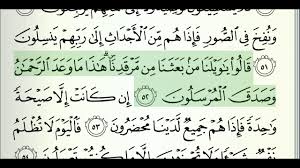 وَنُفِخَ فِي ٱلصُّورِ فَإِذَا هُم مِّنَ ٱلۡأَجۡدَاثِ إِلَىٰ رَبِّهِمۡ يَنسِلُونَ
٥١ قَالُواْ يَٰوَيۡلَنَا مَنۢ بَعَثَنَا مِن مَّرۡقَدِنَاۜۗ هَٰذَا مَا وَعَدَ ٱلرَّحۡمَٰنُ
وَصَدَقَ ٱلۡمُرۡسَلُونَ ٥٢ إِن كَانَتۡ إِلَّا صَيۡحَةٗ
وَٰحِدَةٗ فَإِذَا هُمۡ جَمِيعٞ لَّدَيۡنَا مُحۡضَرُونَ ٥٣ فَٱلۡيَوۡمَ لَا تُظۡلَمُ